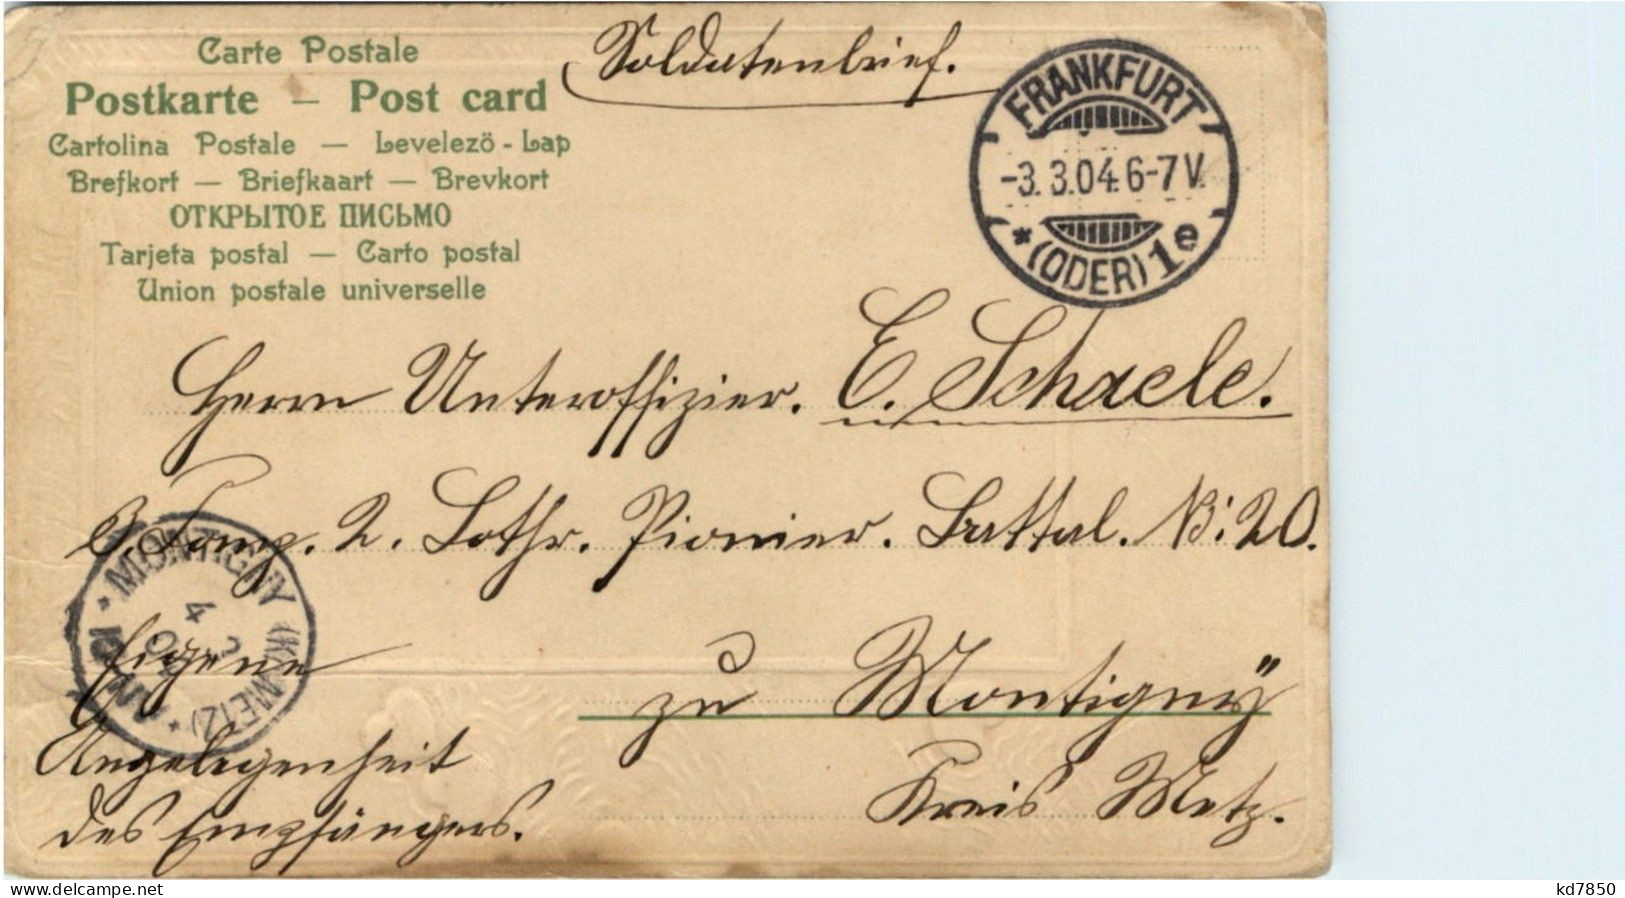 Carte Postale
Postkarte — Post card
Cartolina Postale — Levelezö - Lap
Brefkort — Briefkaart — Brevkort
ОТКРЫТОЕ ПИСЬМО
Tarjeta postal — Carto postal
Union postale universelle
Soldatenbrief.
FRANKFURT
-3.3.04. 6-7 V.
* (ODER) 1e
Herrn Unteroffizier. E. Schaele.
3. Comp. 2. Lothr. Pionier. Battal. No: 20.
MONTIGNY
(KR. METZ)
4
Eigene
zu Montigny
Angelegenheit
Kreis Metz.
des Empfängers.
www.delcampe.net
kd7850